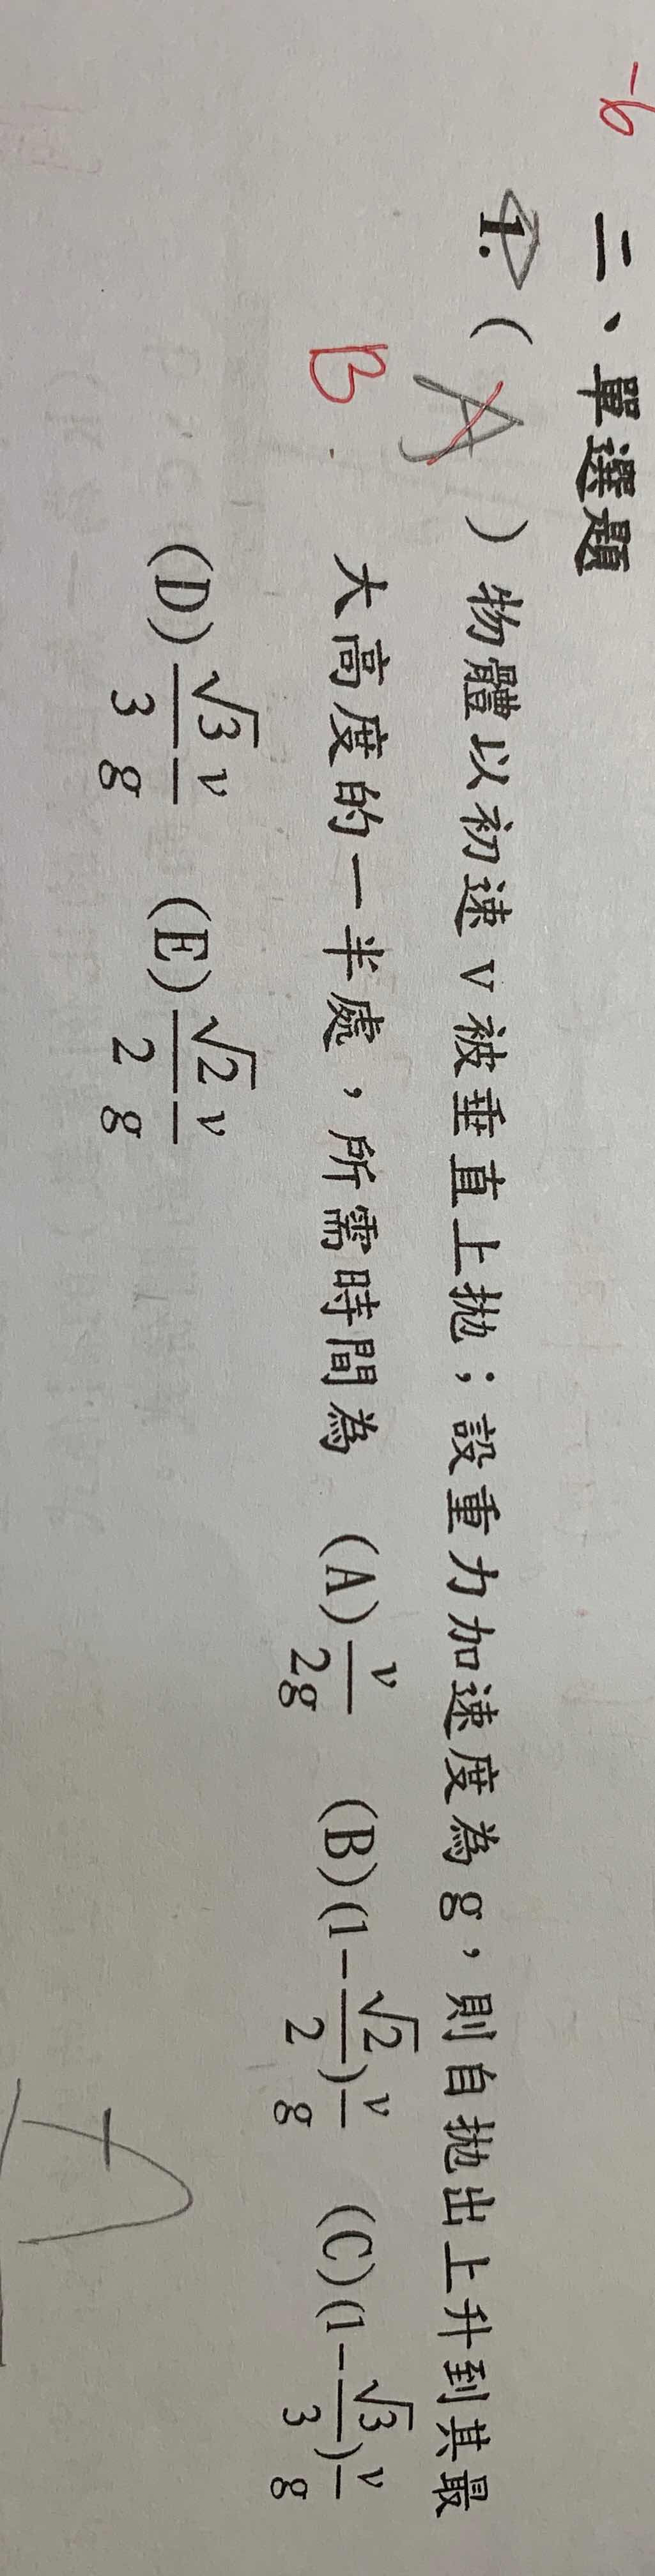 -6
二、單選題
1. ( A ) 物體以初速 v 被垂直上拋；設重力加速度為 g，則自拋出上升到其最
B
大高度的一半處，所需時間為 (A) v/2g (B) (1-√2/2) v/g (C) (1-√3/3) v/g
(D) √3/3 v/g (E) √2/2 v/g